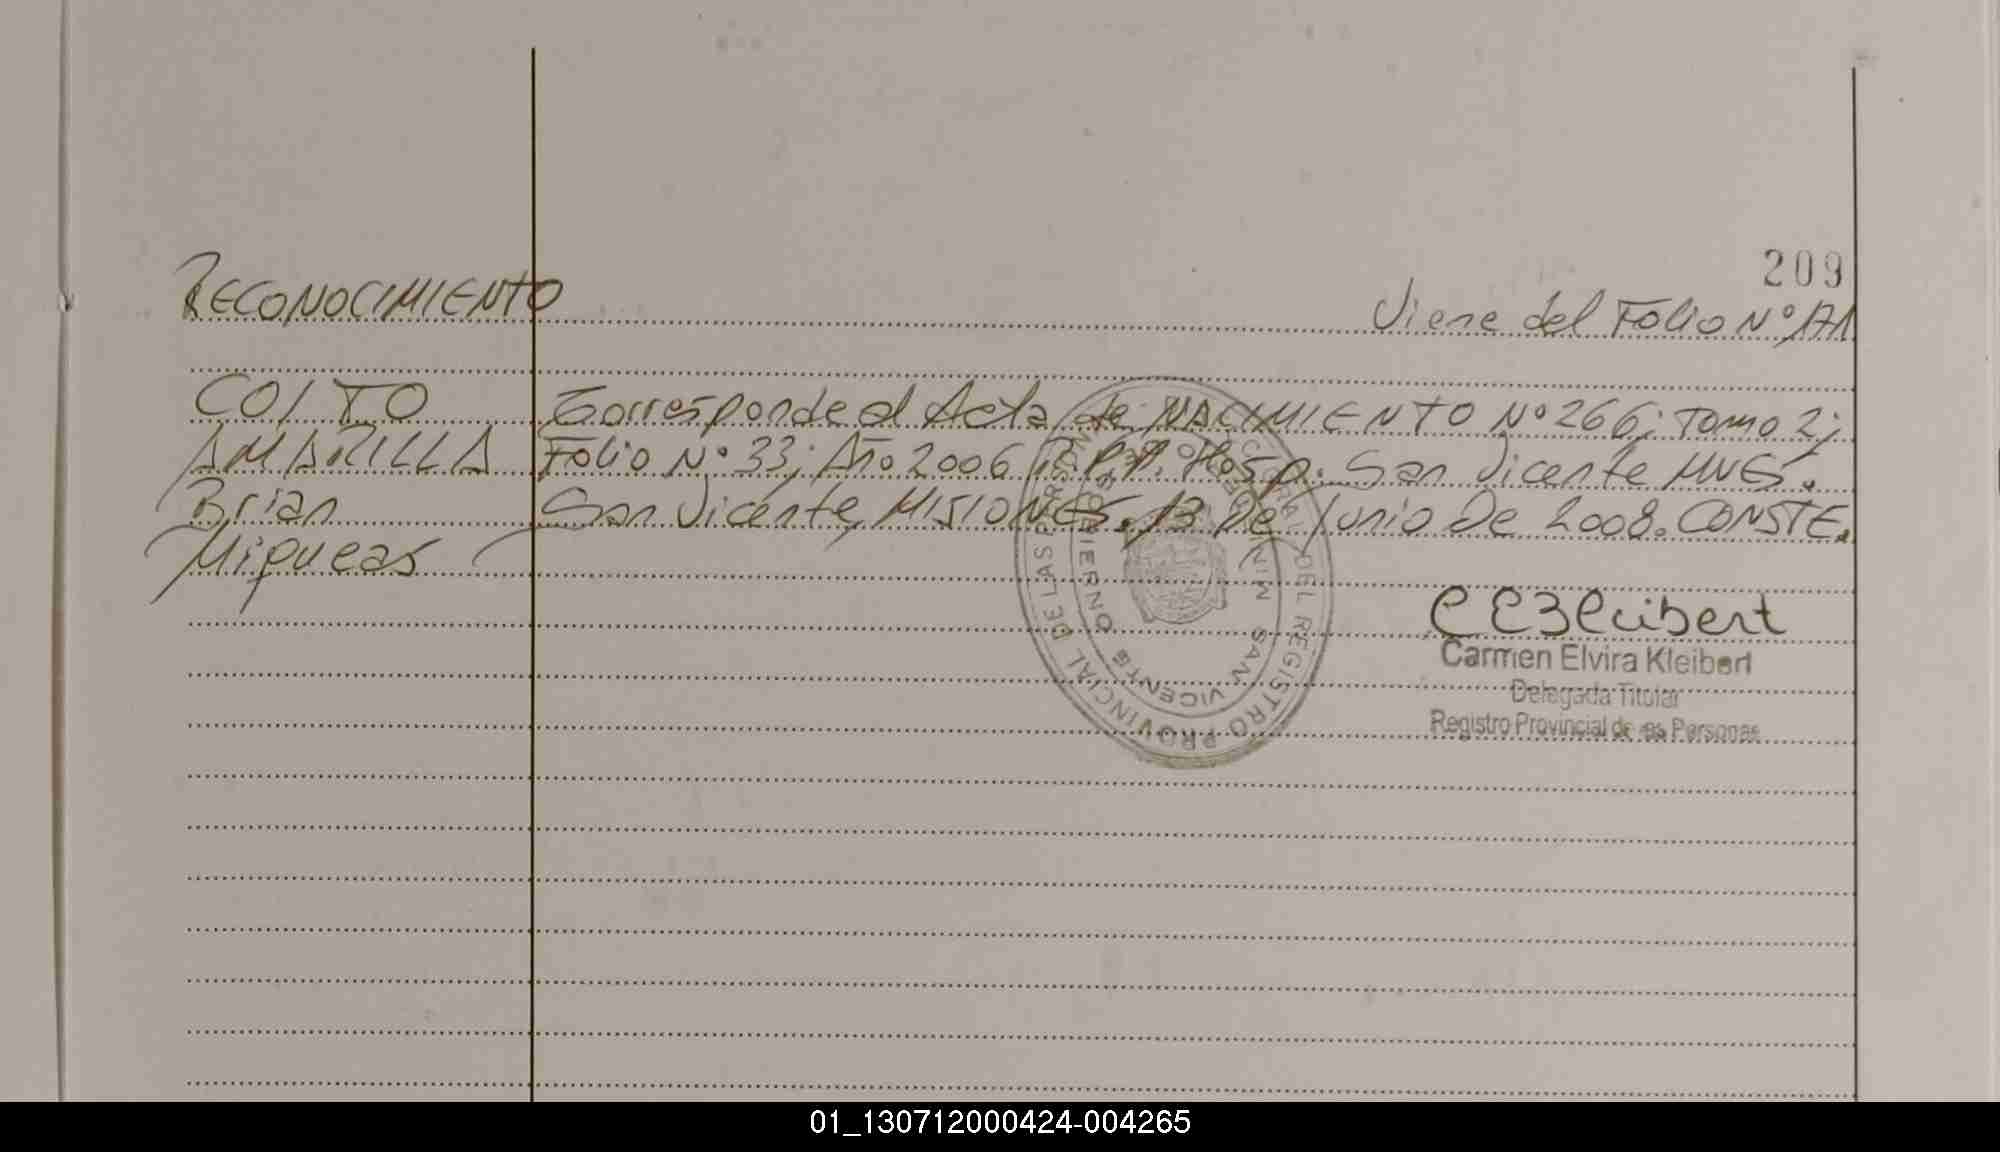 209
RECONOCIMIENTO
Viene del Folio Nº 171
COITO
AMARILLA
Brian
Miqueas
Corresponde al Acta de NACIMIENTO Nº 266; Tomo 2;
Folio Nº 33; Año 2006 R.P.P. Hosp. San Vicente MNES.
San Vicente, MISIONES, 13 De Junio De 2008. CONSTE.
CEKleibert
Carmen Elvira Kleibert
Delegada Titular
Registro Provincial de las Personas
DEL REGISTRO PROVINCIAL DE LAS PERSONAS
SAN VICENTE
01_130712000424-004265